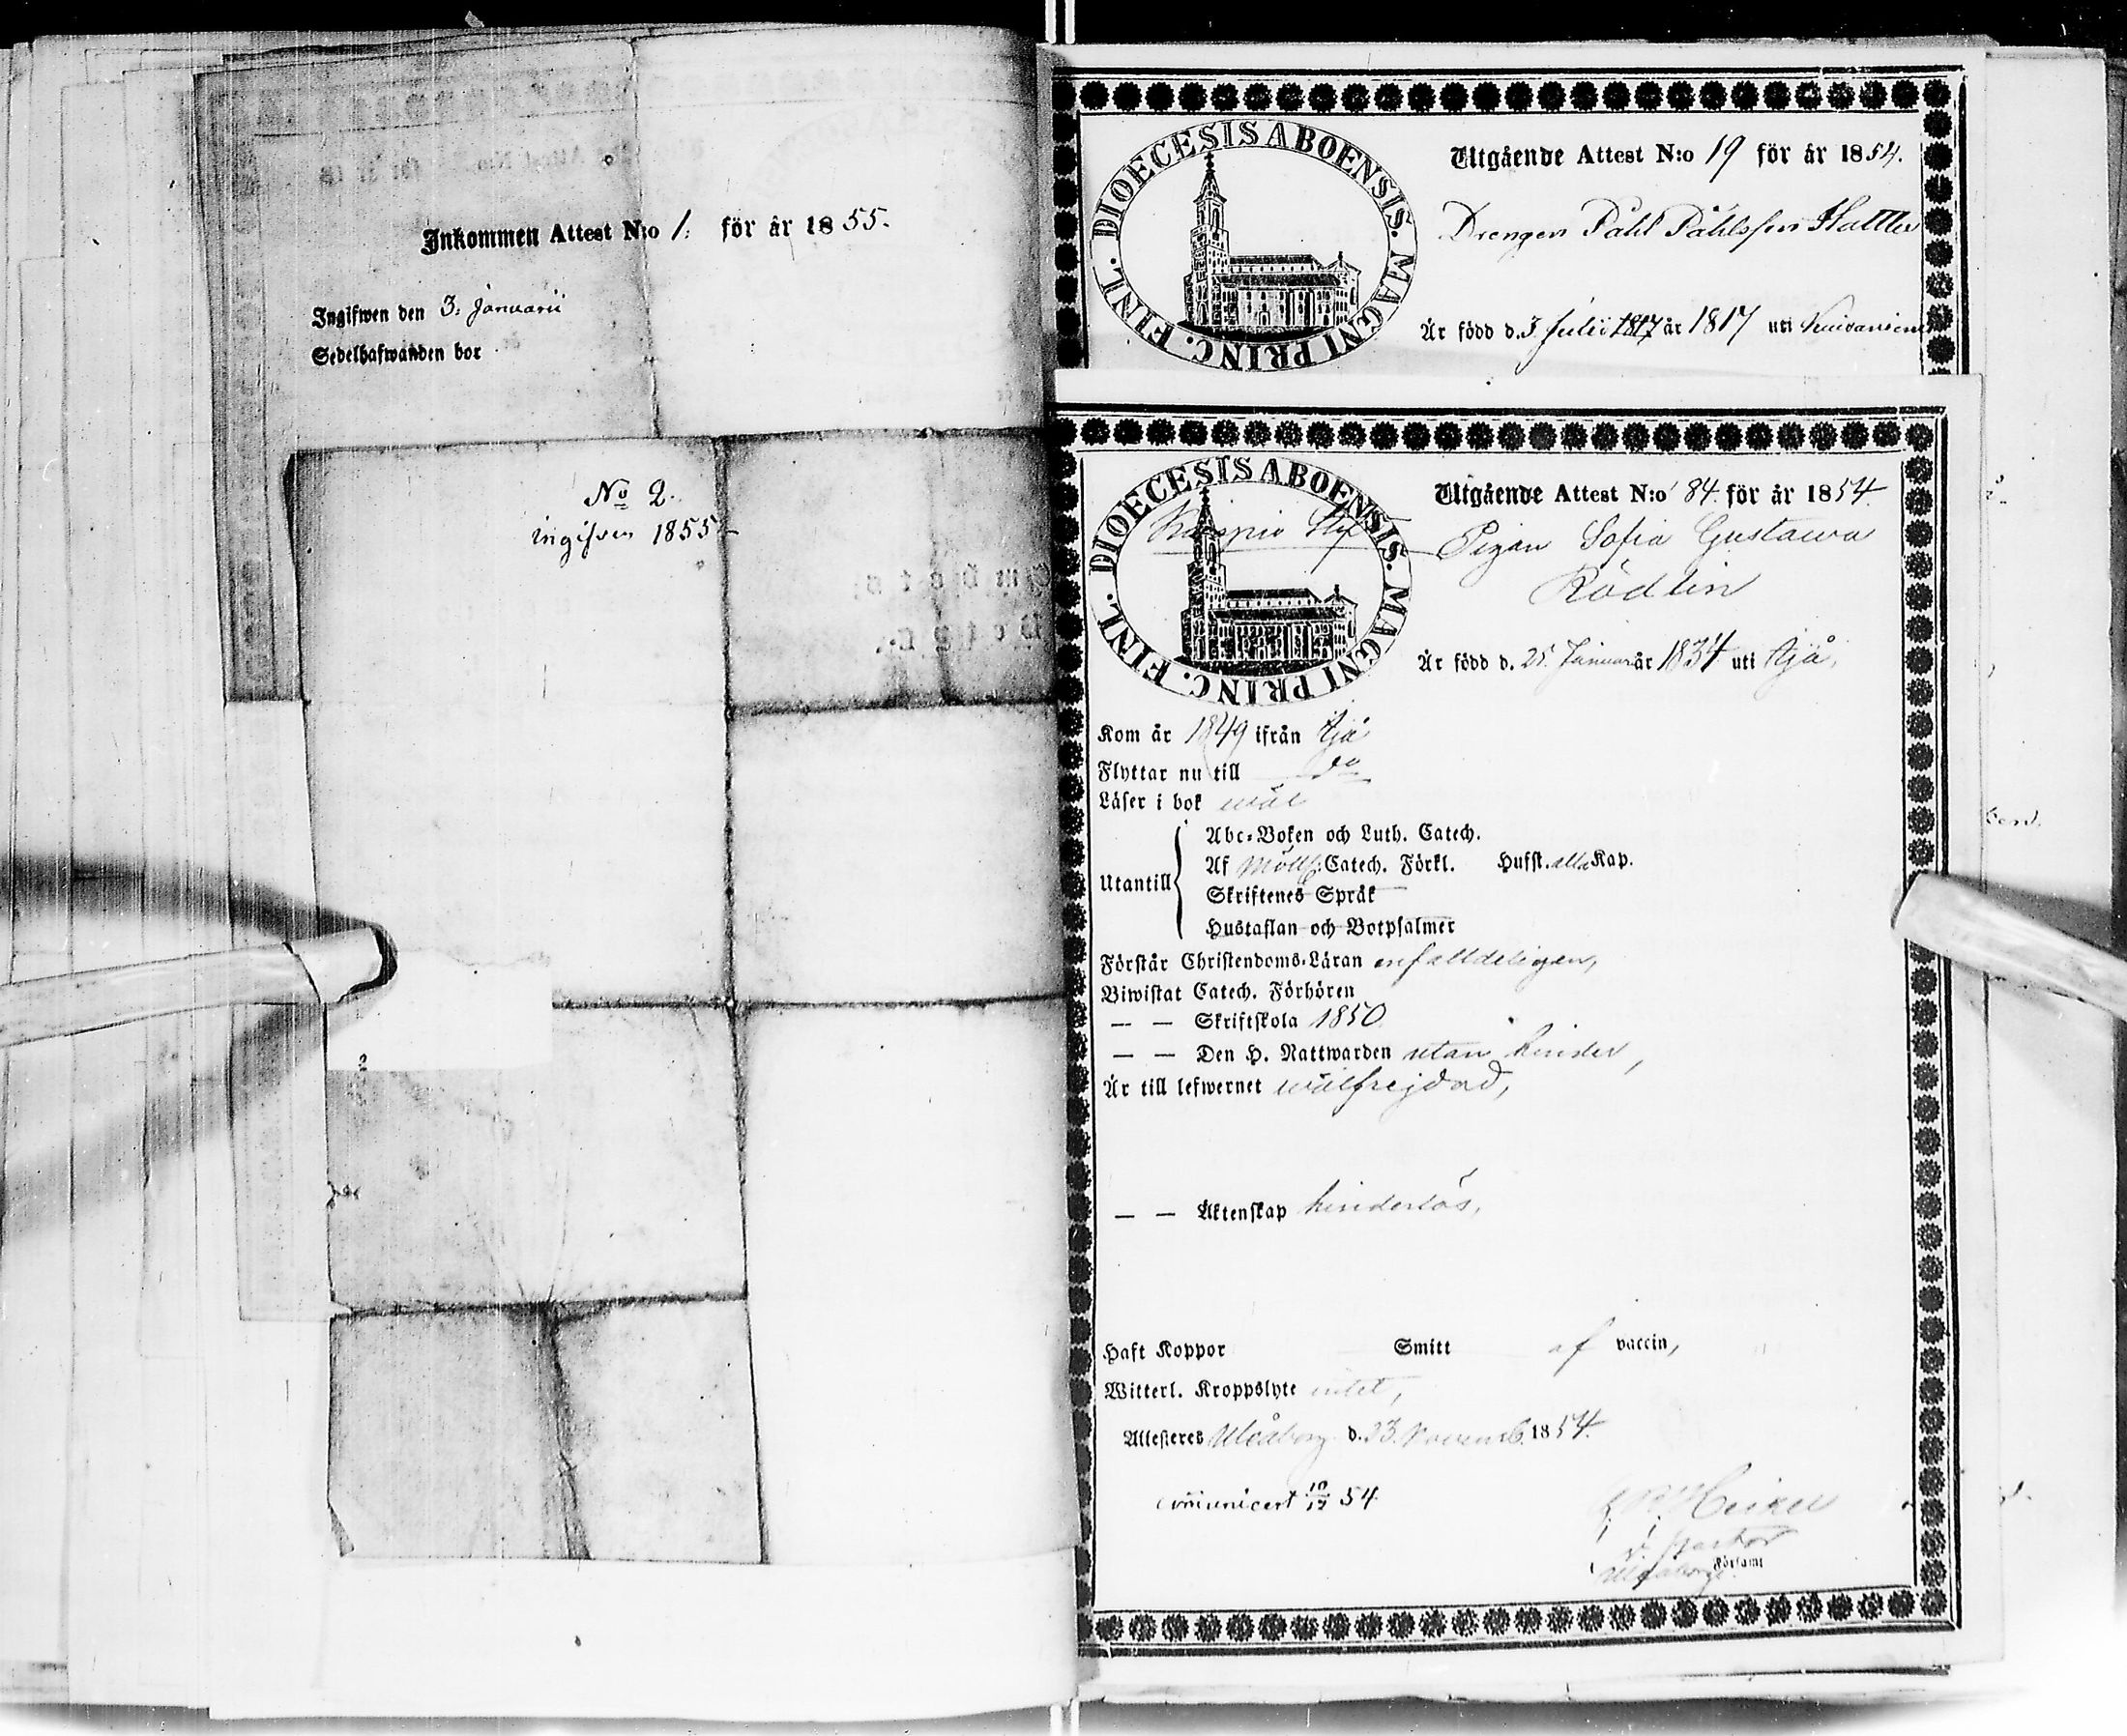 Inkommen Attest N:o 1. för år 1855.
Ingifwen den 3. Januarii
Sedelhafwanden bor
No 2.
ingifven 1855
2
DIOECESIS ABOENSIS. MAGNI PRINC. FINL.
Utgående Attest N:o 19 för år 1854.
Drengen Påhl Påhlsson
Är född d. 3 Julii 1817 år 1817 uti
DIOECESIS ABOENSIS. MAGNI PRINC. FINL.
Utgående Attest N:o 84. för år 1854.
Pigan Sofia Gustawa
Rödlin
Är född d. 25. Januar år 1834 uti Ijå,
Kom år 1849 ifrån Ijå
Flyttar nu till do
Läser i bok wäl
Utantill
Abc-Boken och Luth. Catech.
Af Möll: Catech. Förkl. Hufst. alla Kap.
Skriftenes Språk
Hustaflan och Botpsalmer
Förstår Christendoms-Läran enfalldeligen,
Biwistat Catech. Förhören
— — Skriftskola 1850
— — Den H. Nattwarden utan hinder,
Är till lefwernet wälfrejdad,
— — Äktenskap hinderlös,
Haft Koppor Smitt af vaccin,
Witterl. Kroppslyte intet,
Attesteras Uleåborg d. 23. Novemb. 1854.
communicert 10/12 54
Heikel
v. pastor
Uleåborgs Församl